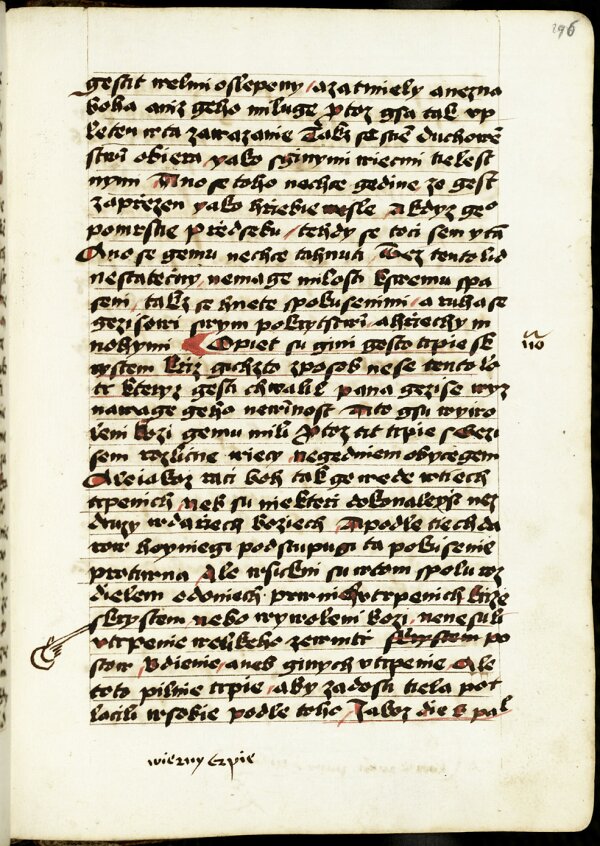 196
gestit welmi oslepeny / a zatmiely a nezna
boha aniz geho miluge Protoz gsa tak vp
leten w ta zawazanie Takz se stie duchowe
stwi obiera yako s ginymi wiecmi tielest
nymi A no se toho nechce gedine ze gest
zaprezen yako hriebie w sle A kdyz geo
pomrstie predseku / tehdy se toci sem y tā
Ano se gemu nechce tahnuti Tez tento lid
nestatečny / nemage milosti k swemu spa
seni / takz se hnete spokusenimi / a ruha se
gezisowi swym pokrytstwi / a hriechy m
nohymi Opiet su gini gesto trpie s k
rystem križ gichzto zposob nese tento lo
tr kteryz gest chwalil pana gezise wyz
nawage geho newinnost A ti to gsu wywo
leni bozi gemu mili Protoz tit trpie s gezi
sem rozlične wiecy negedniem obyčegem
Ale iakoz raci boh tak ge wede w tiech
trpenich Neb su niekteri dokonaleyssi nez
druzy w dariech boziech A podle tiech da
row hoyniegi podstupugi ta pokusenie
protiwna Ale wsickni su w tom spolu roz
dielem o doniech prwnich w trpenich križe
s krystem nebo wywoleni bozi / nenesu li
vtrpenie welikeho zewnitř po
stow bdienie / aneb ginych vtrpenie Ale
toto pilnie trpie / aby zadosti tiela pot
lacili w sobie podle toho Jakoz die s pal
wierny trpie